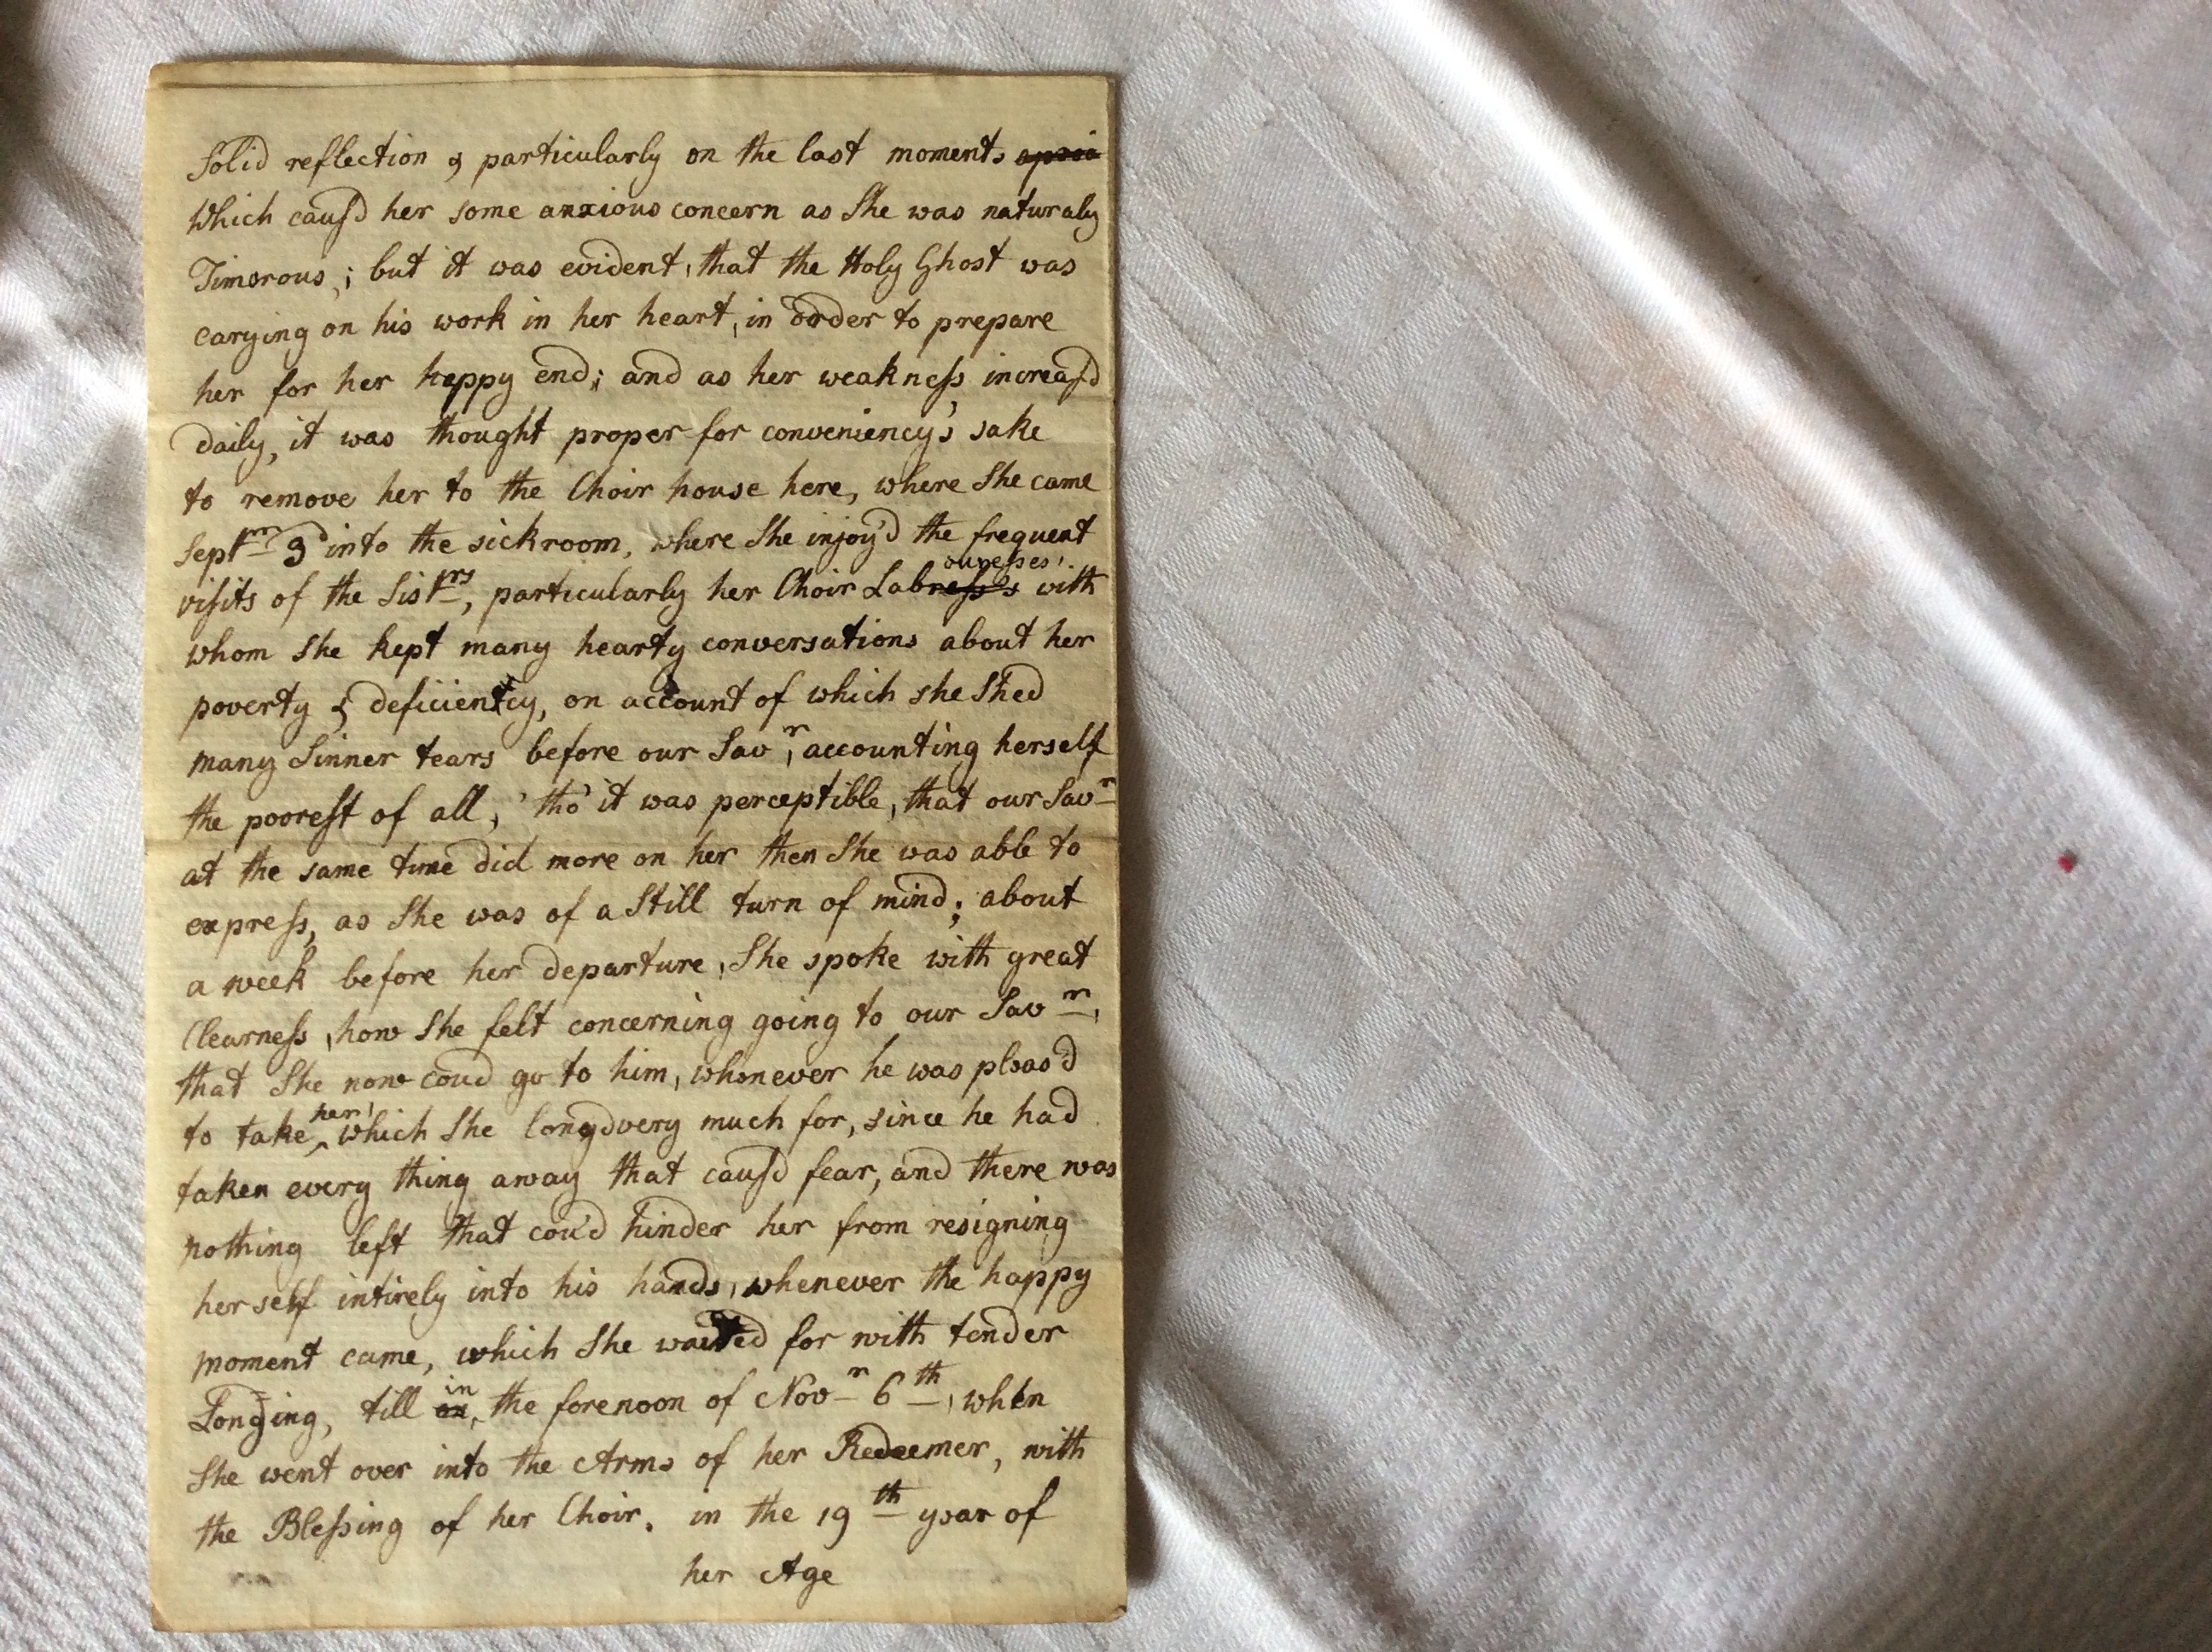 Solid reflection & particularly on the last moments
Which caus'd her some anxious concern as She was naturaly
Timorous,; but it was evident, that the Holy Ghost was
carying on his work in her heart, in order to prepare
her for her happy end; and as her weakness increas'd
daily, it was thought proper for conveniency's sake
to remove her to the Choir house here, where She came
Septmr 3d into the sickroom, where She injoy'd the frequent
visits of the Sistrs, particularly her Choir Labouresses, with
whom she kept many hearty conversations about her
poverty & deficientcy, on account of which she Shed
many Sinner tears before our Savr, accounting herself
the poorest of all, tho' it was perceptible, that our Savr
at the same time did more on her then She was able to
express, as She was of a Still turn of mind; about
a week before her departure, She spoke with great
Clearness, how She felt concerning going to our Savr,
that She now coud go to him, whenever he was pleas'd
to take her, which She long'd very much for, since he had
taken every thing away that caus'd fear, and there was
nothing left that cou'd hinder her from resigning
herself intirely into his hands, whenever the happy
moment came, which She waited for with tender
Longing, till in the forenoon of Novr 6th, when
She went over into the Arms of her Redeemer, with
the Blessing of her Choir. in the 19th year of
her Age